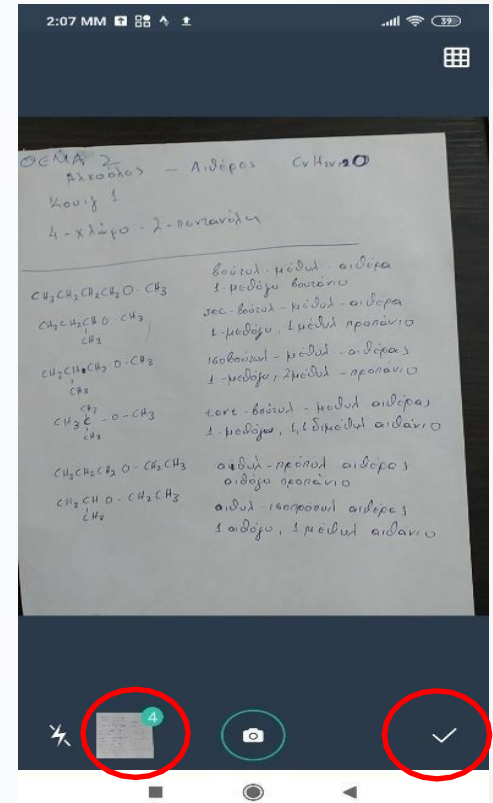 2:07 ΜΜ
39
ΘΕΜΑ 2
Αλκοόλος - Αιθέρας CνH2ν+2O
Κουιζ 1
4-χλωρο-2-πεντανόλη
CH3CH2CH2CH2O-CH3
βούτυλ-μέθυλ-αιθέρα
1-μεθόξυ βουτάνιο
CH3CH2CHO-CH3
CH3
sec-βούτυλ-μέθυλ-αιθέρα
1-μεθόξυ, 1μέθυλ προπάνιο
O-CH3
CH3
ισοβούτυλ-μέθυλ-αιθέρας
1-μεθόξυ, 2μέθυλ-προπάνιο
CH3
CH3C-O-CH3
CH3
τετ-βούτυλ-μεθυλ αιθέρας
1-μεθόξυ, 1,1διμέθυλ αιθάνιο
CH3CH2CH2O-CH2CH3
αιθυλ-πρόπυλ αιθέρας
αιθόξυ προπάνιο
CH3CHO-CH2CH3
CH3
αιθυλ-ισοπρόπυλ αιθέρας
1αιθόξυ, 1μέθυλ αιθάνιο
4